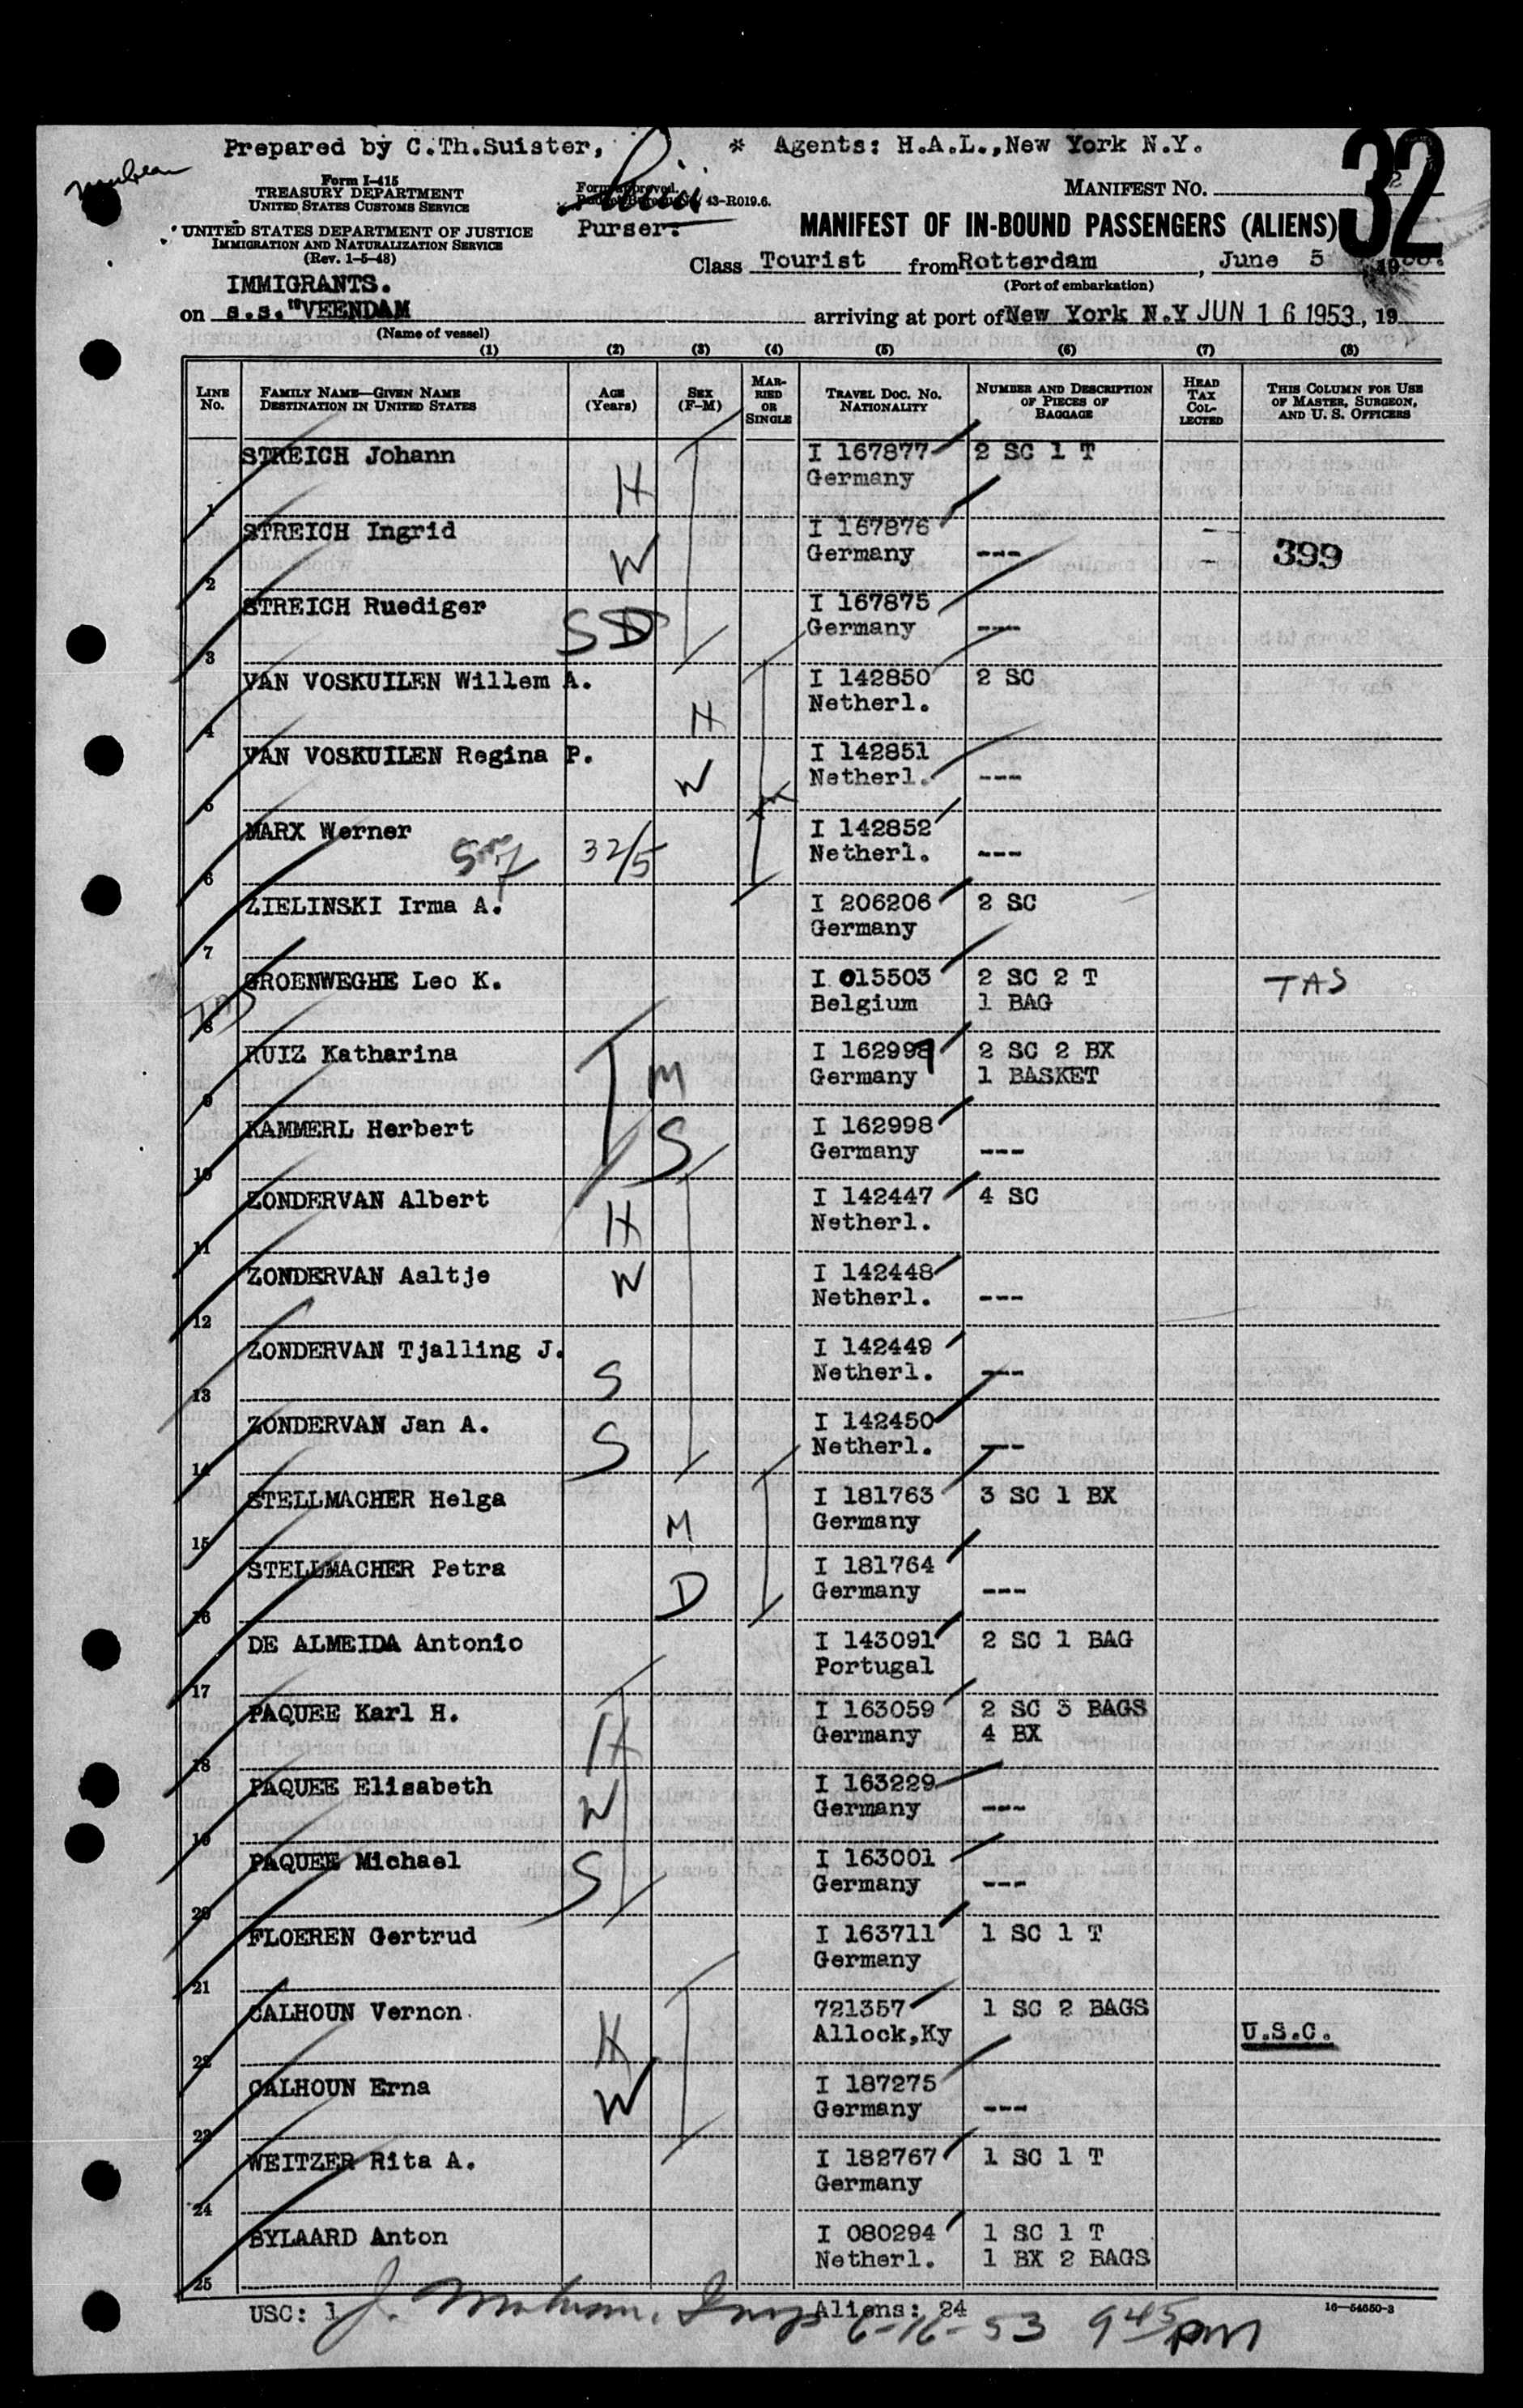 Prepared by C.Th.Suister, * Agents: H.A.L.,New York N.Y.
32
Form I-415
TREASURY DEPARTMENT
UNITED STATES CUSTOMS SERVICE
UNITED STATES DEPARTMENT OF JUSTICE
IMMIGRATION AND NATURALIZATION SERVICE
(Rev. 1-5-48)
Form approved.
Budget Bureau No. 43-R019.6.
Purser.
MANIFEST NO. 2
MANIFEST OF IN-BOUND PASSENGERS (ALIENS)
Class Tourist from Rotterdam, June 5
(Port of embarkation)
IMMIGRANTS.
on s.s."VEENDAM arriving at port of New York N.Y JUN 16 1953, 19
(Name of vessel)
(1) (2) (3) (4) (5) (6) (7) (8)
LINE No. FAMILY NAME—GIVEN NAME DESTINATION IN UNITED STATES AGE (Years) SEX (F-M) MARRIED OR SINGLE TRAVEL DOC. NO. NATIONALITY NUMBER AND DESCRIPTION OF PIECES OF BAGGAGE HEAD TAX COLLECTED THIS COLUMN FOR USE OF MASTER, SURGEON, AND U. S. OFFICERS
STREICH Johann I 167877 2 SC 1 T
1 H Germany
STREICH Ingrid I 167876
2 W Germany --- 399
STREICH Ruediger I 167875
3 SD Germany ---
VAN VOSKUILEN Willem A. I 142850 2 SC
4 H Netherl.
VAN VOSKUILEN Regina P. I 142851
5 W Netherl. ---
MARX Werner I 142852
6 32/5 Netherl. ---
ZIELINSKI Irma A. I 206206 2 SC
7 Germany
GROENWEGHE Leo K. I 015503 2 SC 2 T TAS
8 Belgium 1 BAG
RUIZ Katharina I 162997 2 SC 2 BX
9 M Germany 1 BASKET
KAMMERL Herbert I 162998
10 S Germany ---
ZONDERVAN Albert I 142447 4 SC
11 H Netherl.
ZONDERVAN Aaltje I 142448
12 W Netherl. ---
ZONDERVAN Tjalling J. I 142449
13 S Netherl. ---
ZONDERVAN Jan A. I 142450
14 S Netherl. ---
STELLMACHER Helga I 181763 3 SC 1 BX
15 M Germany
STELLMACHER Petra I 181764
16 D Germany ---
DE ALMEIDA Antonio I 143091 2 SC 1 BAG
17 Portugal
PAQUEE Karl H. I 163059 2 SC 3 BAGS
18 H Germany 4 BX
PAQUEE Elisabeth I 163229
19 W Germany ---
PAQUEE Michael I 163001
20 S Germany ---
FLOEREN Gertrud I 163711 1 SC 1 T
21 Germany
CALHOUN Vernon 721357 1 SC 2 BAGS
22 H Allock,Ky U.S.C.
CALHOUN Erna I 187275
23 W Germany ---
WEITZER Rita A. I 182767 1 SC 1 T
24 Germany
BYLAARD Anton I 080294 1 SC 1 T
25 Netherl. 1 BX 2 BAGS
USC: 1 Aliens: 24 16—54650-3
6-16-53 9 45 pm